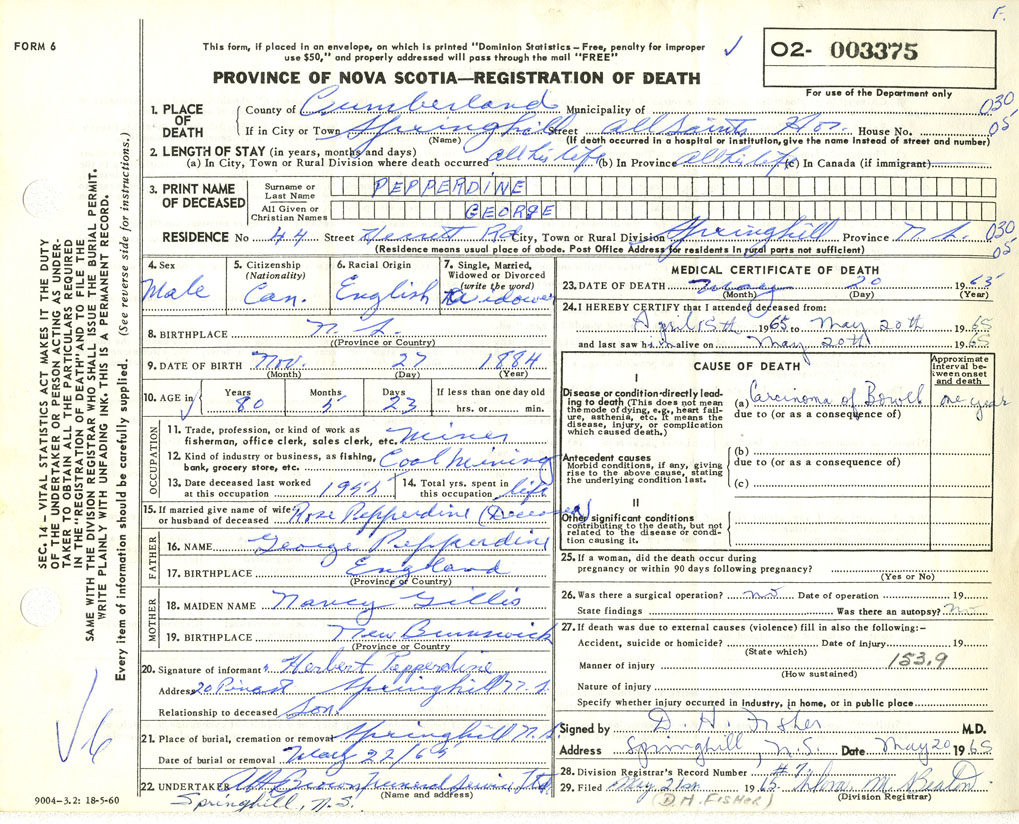 F.
FORM 6
This form, if placed in an envelope, on which is printed "Dominion Statistics – Free, penalty for improper
use $50," and properly addressed will pass through the mail "FREE"
O2- 003375
For use of the Department only
PROVINCE OF NOVA SCOTIA—REGISTRATION OF DEATH
1. PLACE OF DEATH
County of Cumberland Municipality of 030
If in City or Town Springhill Street All Saints Hos. House No. 05
(Name) (If death occurred in a hospital or institution, give the name instead of street and number)
2. LENGTH OF STAY (in years, months and days)
(a) In City, Town or Rural Division where death occurred all his life (b) In Province all his life (c) In Canada (if immigrant)
3. PRINT NAME OF DECEASED
Surname or Last Name PEPPERDINE
All Given or Christian Names GEORGE
RESIDENCE No 44 Street Herrett Rd City, Town or Rural Division Springhill Province N.S. 030
(Residence means usual place of abode. Post Office Address for residents in rural parts not sufficient) 05
4. Sex Male
5. Citizenship (Nationality) Can.
6. Racial Origin English
7. Single, Married, Widowed or Divorced (write the word) Widower
8. BIRTHPLACE N.S.
(Province or Country)
9. DATE OF BIRTH Nov. 27 1884
(Month) (Day) (Year)
10. AGE in Years 80 Months 5 Days 23 If less than one day old hrs. or min.
OCCUPATION
11. Trade, profession, or kind of work as fisherman, office clerk, sales clerk, etc. Miner
12. Kind of industry or business, as fishing, bank, grocery store, etc. Coal Mining
13. Date deceased last worked at this occupation 1955
14. Total yrs. spent in this occupation life
15. If married give name of wife or husband of deceased Rose Pepperdine (Deceased)
FATHER
16. NAME George Pepperdine
17. BIRTHPLACE England
(Province or Country)
MOTHER
18. MAIDEN NAME Nancy Gillis
19. BIRTHPLACE New Brunswick
(Province or Country)
20. Signature of informant Herbert Pepperdine
Address 20 Springhill N.S.
Relationship to deceased Son.
21. Place of burial, cremation or removal Springhill N.S.
Date of burial or removal May 22/65
22. UNDERTAKER Brown Funeral Service Ltd
(Name and address)
Springhill, N.S.
MEDICAL CERTIFICATE OF DEATH
23. DATE OF DEATH May 20 1965
(Month) (Day) (Year)
24. I HEREBY CERTIFY that I attended deceased from:
April 15th 1965 to May 20th 1965
and last saw him alive on May 20th 1965
CAUSE OF DEATH
Approximate interval between onset and death
I
Disease or condition directly leading to death (This does not mean the mode of dying, e.g., heart failure, asthenia, etc. It means the disease, injury, or complication which caused death.)
(a) Carcinoma of Bowell one year
due to (or as a consequence of)
Antecedent causes
Morbid conditions, if any, giving rise to the above cause, stating the underlying condition last.
(b)
due to (or as a consequence of)
(c)
II
Other significant conditions contributing to the death, but not related to the disease or condition causing it.
25. If a woman, did the death occur during
pregnancy or within 90 days following pregnancy?
(Yes or No)
26. Was there a surgical operation? no Date of operation 19
State findings Was there an autopsy? no
27. If death was due to external causes (violence) fill in also the following:–
Accident, suicide or homicide? Date of injury 19
(State which) 153.9
Manner of injury
(How sustained)
Nature of injury
Specify whether injury occurred in industry, in home, or in public place
Signed by D. H. Fisher M.D.
Address Springhill, N.S. Date May 20 1965
28. Division Registrar's Record Number #7
29. Filed May 21st 1965
(Division Registrar)
(D.H. FISHER)
SEC. 14 – VITAL STATISTICS ACT MAKES IT THE DUTY
OF THE UNDERTAKER OR PERSON ACTING AS UNDER-
TAKER TO OBTAIN ALL THE PARTICULARS REQUIRED
IN THE "REGISTRATION OF DEATH" AND TO FILE THE
SAME WITH THE DIVISION REGISTRAR WHO SHALL ISSUE THE BURIAL PERMIT.
WRITE PLAINLY WITH UNFADING INK. THIS IS A PERMANENT RECORD.
Every item of information should be carefully supplied. (See reverse side for instructions.)
9004-3.2: 18-5-60